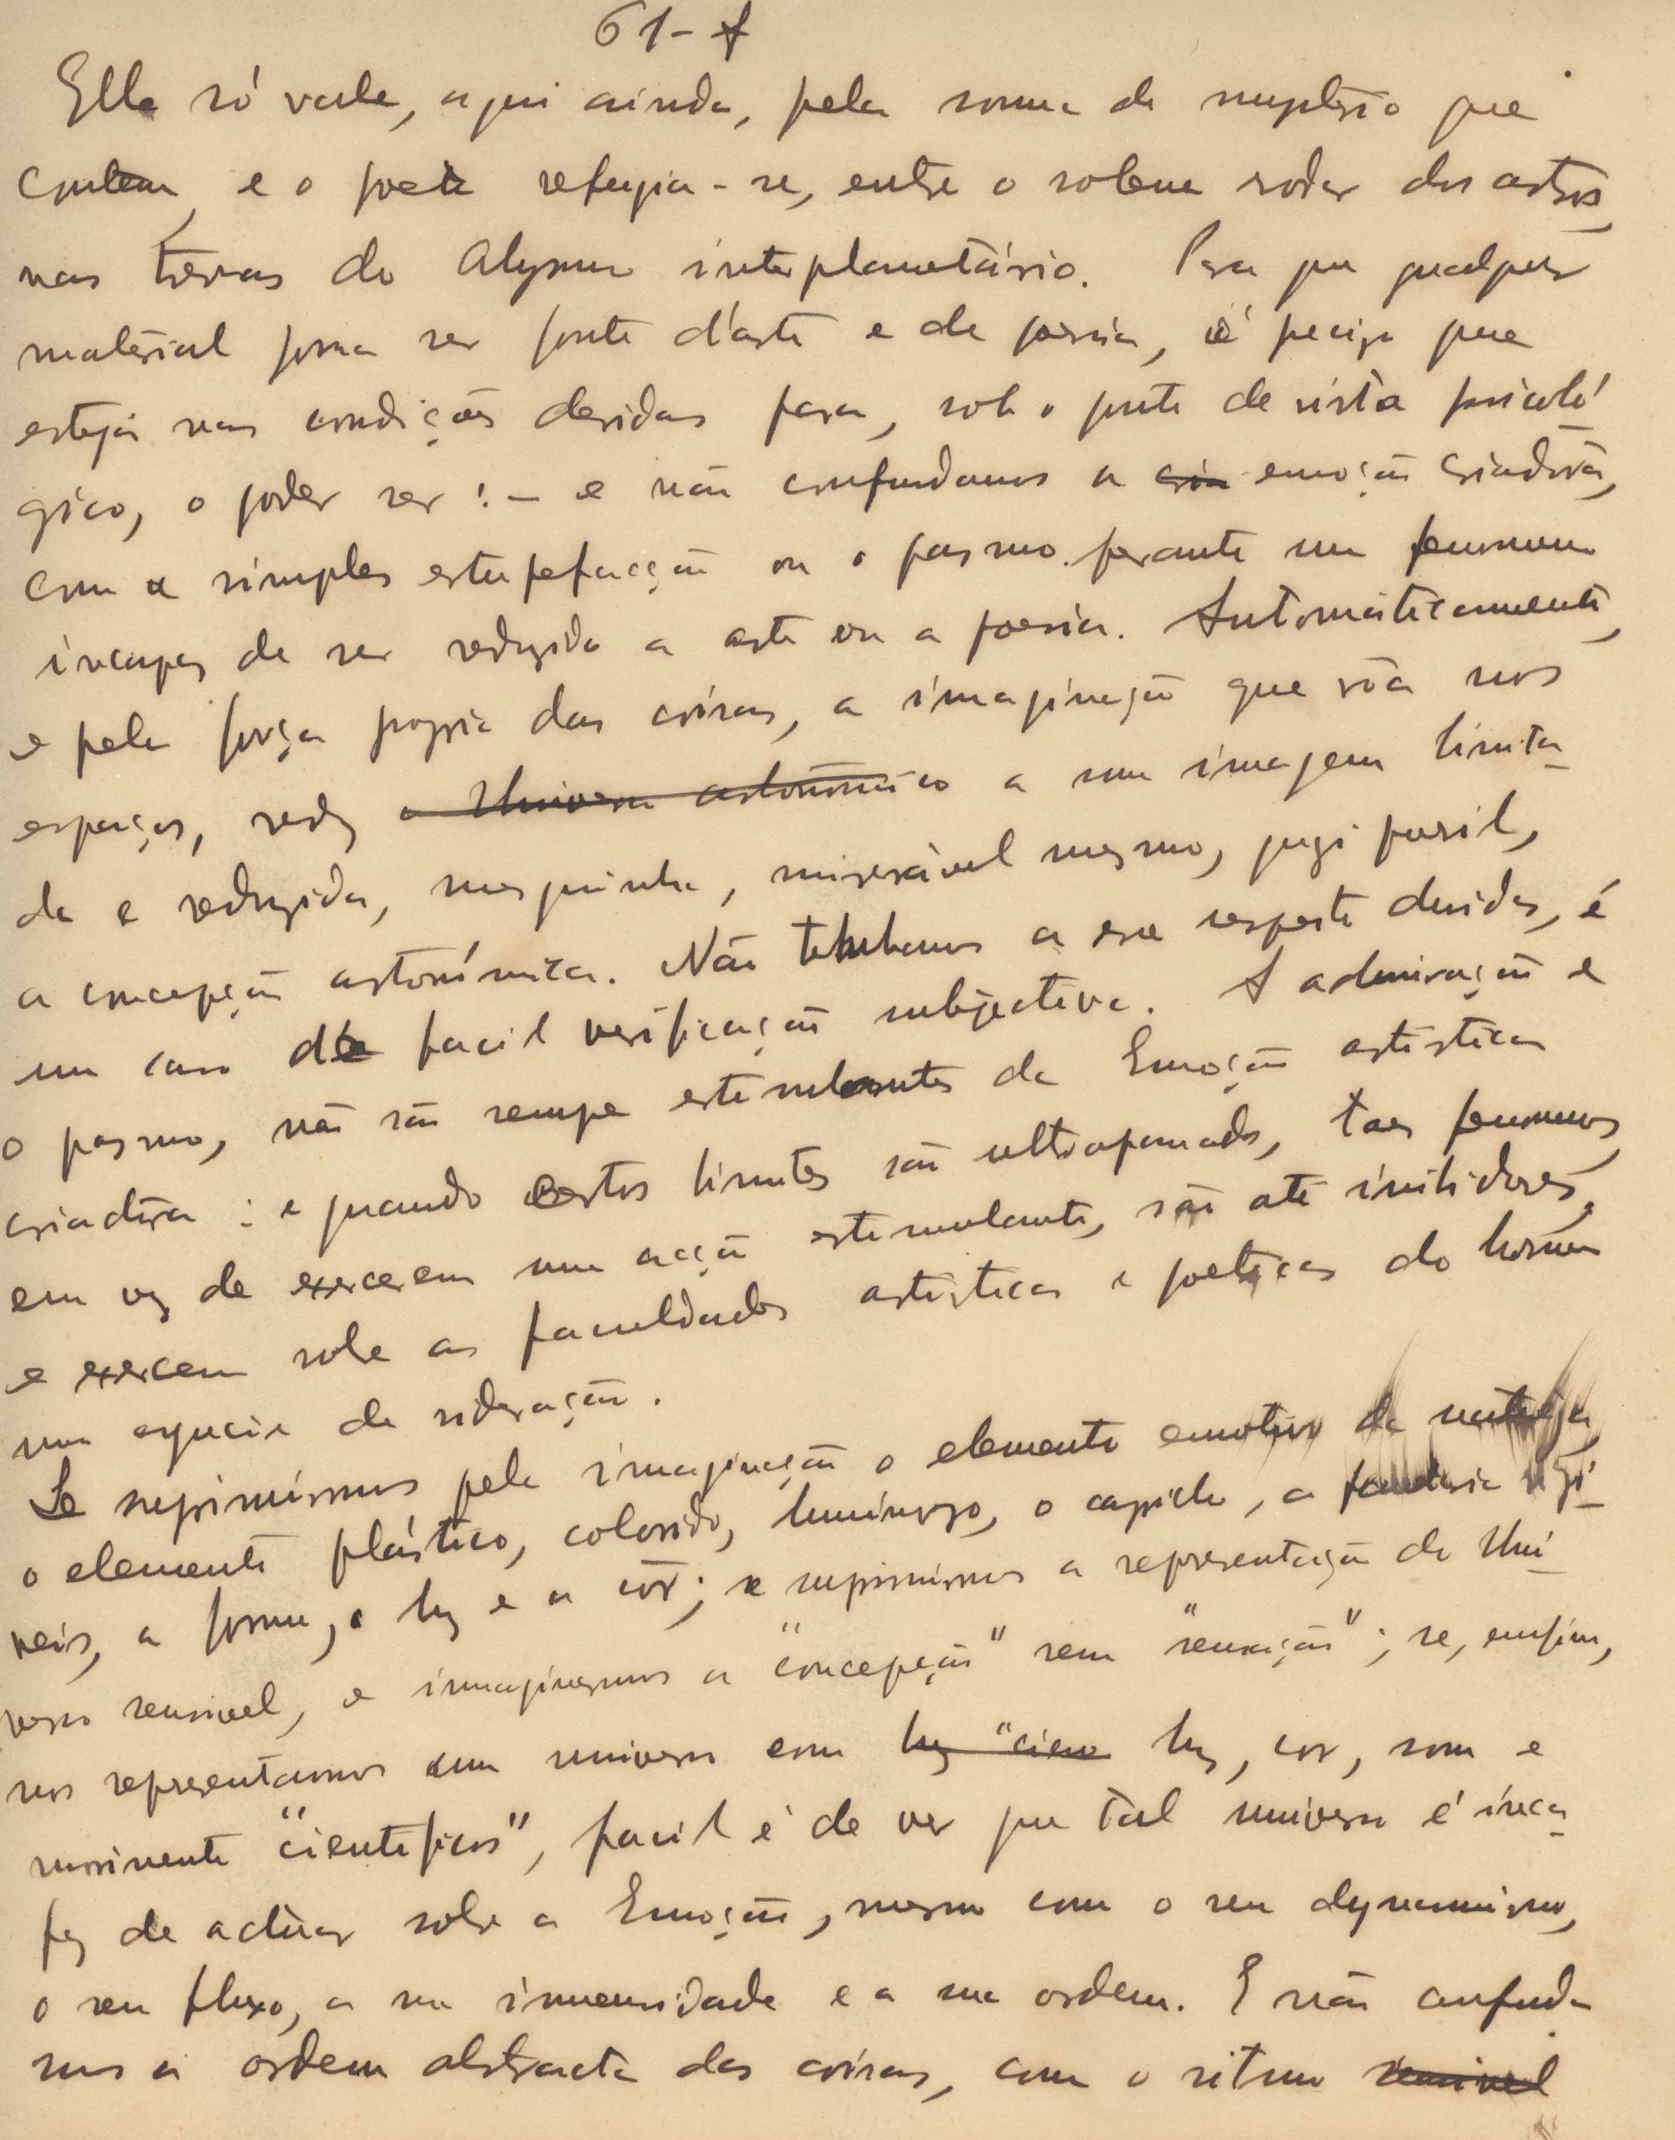 61-A
Ella só vale, aqui ainda, pela somma de mysterio que
contem, e o poeta refugia-se, entre o solene rodar dos astros,
nas trevas do Abysmo interplanetário. Para que qualquer
material possa ser fonte d'arte e de poesia, é preciso que
esteja nas condições devidas para, sob o ponto de vista psicoló-
gico, o poder ser: - e não confundamos a cria emoção criadora,
com a simples estupefacção ou o pasmo perante um fenomeno
incapaz de ser reduzido a arte ou a poesia. Automáticamente,
e pela força propria das coisas, a imaginação que vôa nos
espaços, reduz o Universo astronómico a uma imagem limita-
da e reduzida, mesquinha, miserável mesmo, quasi pueril,
a concepção astronómica. Não tenhamos a esse respeito duvidas, é
um caso de facil verificação subjectiva. A admiração e
o pasmo, não são sempre estimulantes da Emoção artistica
criadôra: e quando certos limites são ultrapassados, taes fenomenos,
em vez de exercerem uma acção estimulante, são até inibidores,
e exercem sobre as faculdades artisticas e poeticas do homem
uma especie de sideração.
Se suprimirmos pela imaginação o elemento emotivo da natureza,
o elemento plástico, colorido, luminoso, o capricho, a fantasia
a forma, a luz e a côr; se suprimirmos a representação do Uni-
verso sensivel, e imaginarmos a "concepção" sem "sensação"; se, emfim,
nos representarmos um universo com luz "cien luz, cor, som e
movimento "cientificos", facil é de ver que tal universo é inca-
paz de actuar sobre a Emoção, mesmo com o seu dynamismo,
o seu fluxo, a sua immensidade e a sua ordem. E não confunda-
mos a ordem abstracta das coisas, com o ritmo sensivel